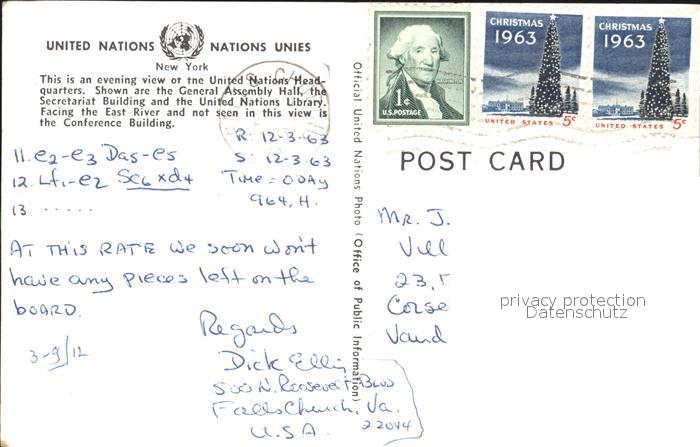 UNITED NATIONS NATIONS UNIES
New York
This is an evening view of the United Nations Head-
quarters. Shown are the General Assembly Hall, the
Secretariat Building and the United Nations Library.
Facing the East River and not seen in this view is
the Conference Building.
R: 12-3-63
S: 12-3-63
TIME = 0 DAY
964, H.
11. e2-e3 Da5-e5
12. Lf1-e2 Sc6xd4
13 .....
AT THIS RATE we soon won't
have any pieces left on the
BOARD.
Regards
3-9/12
Dick Ellis
500 N. Roosevelt Blvd
Falls Church, Va.
22044
U.S.A.
Official United Nations Photo (Office of Public Information)
1¢
U.S. POSTAGE
CHRISTMAS
1963
UNITED STATES 5¢
CHRISTMAS
1963
UNITED STATES 5¢
POST CARD
Mr. J.
Vill
23,
Corse
Vaud
privacy protection
Datenschutz